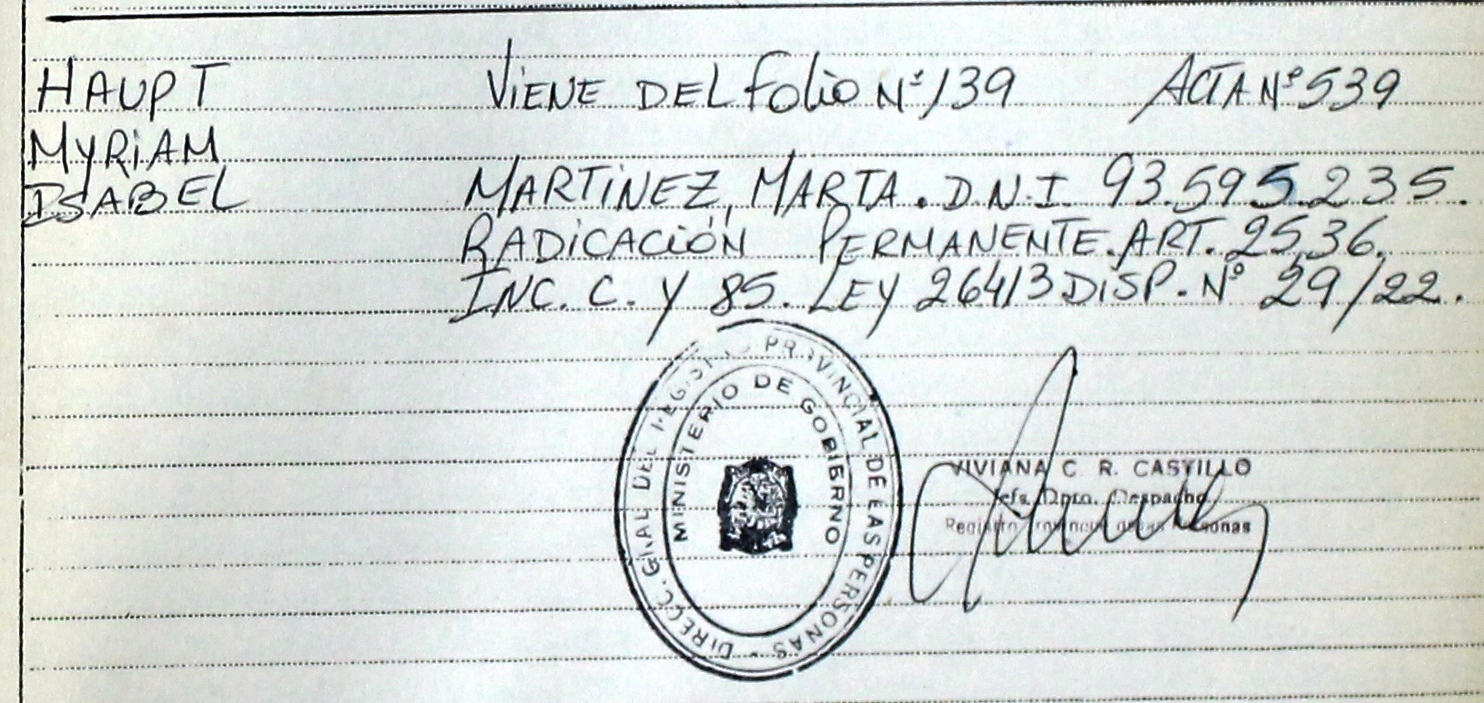 HAUPT
MYRIAM
ISABEL
VIENE DEL FOLIO Nº 139 ACTA Nº 539
MARTINEZ, MARTA. D.N.I. 93.595.235.
RADICACIÓN PERMANENTE. ART. 25.36.
INC. C. Y 85. LEY 26413 DISP. Nº 29/22.
DIRECC. GRAL DEL REGISTRO PROVINCIAL DE LAS PERSONAS -
MINISTERIO DE GOBIERNO
VIVIANA C. R. CASTILLO
Jefe Dpto. Despacho
Registro Provincial de las Personas